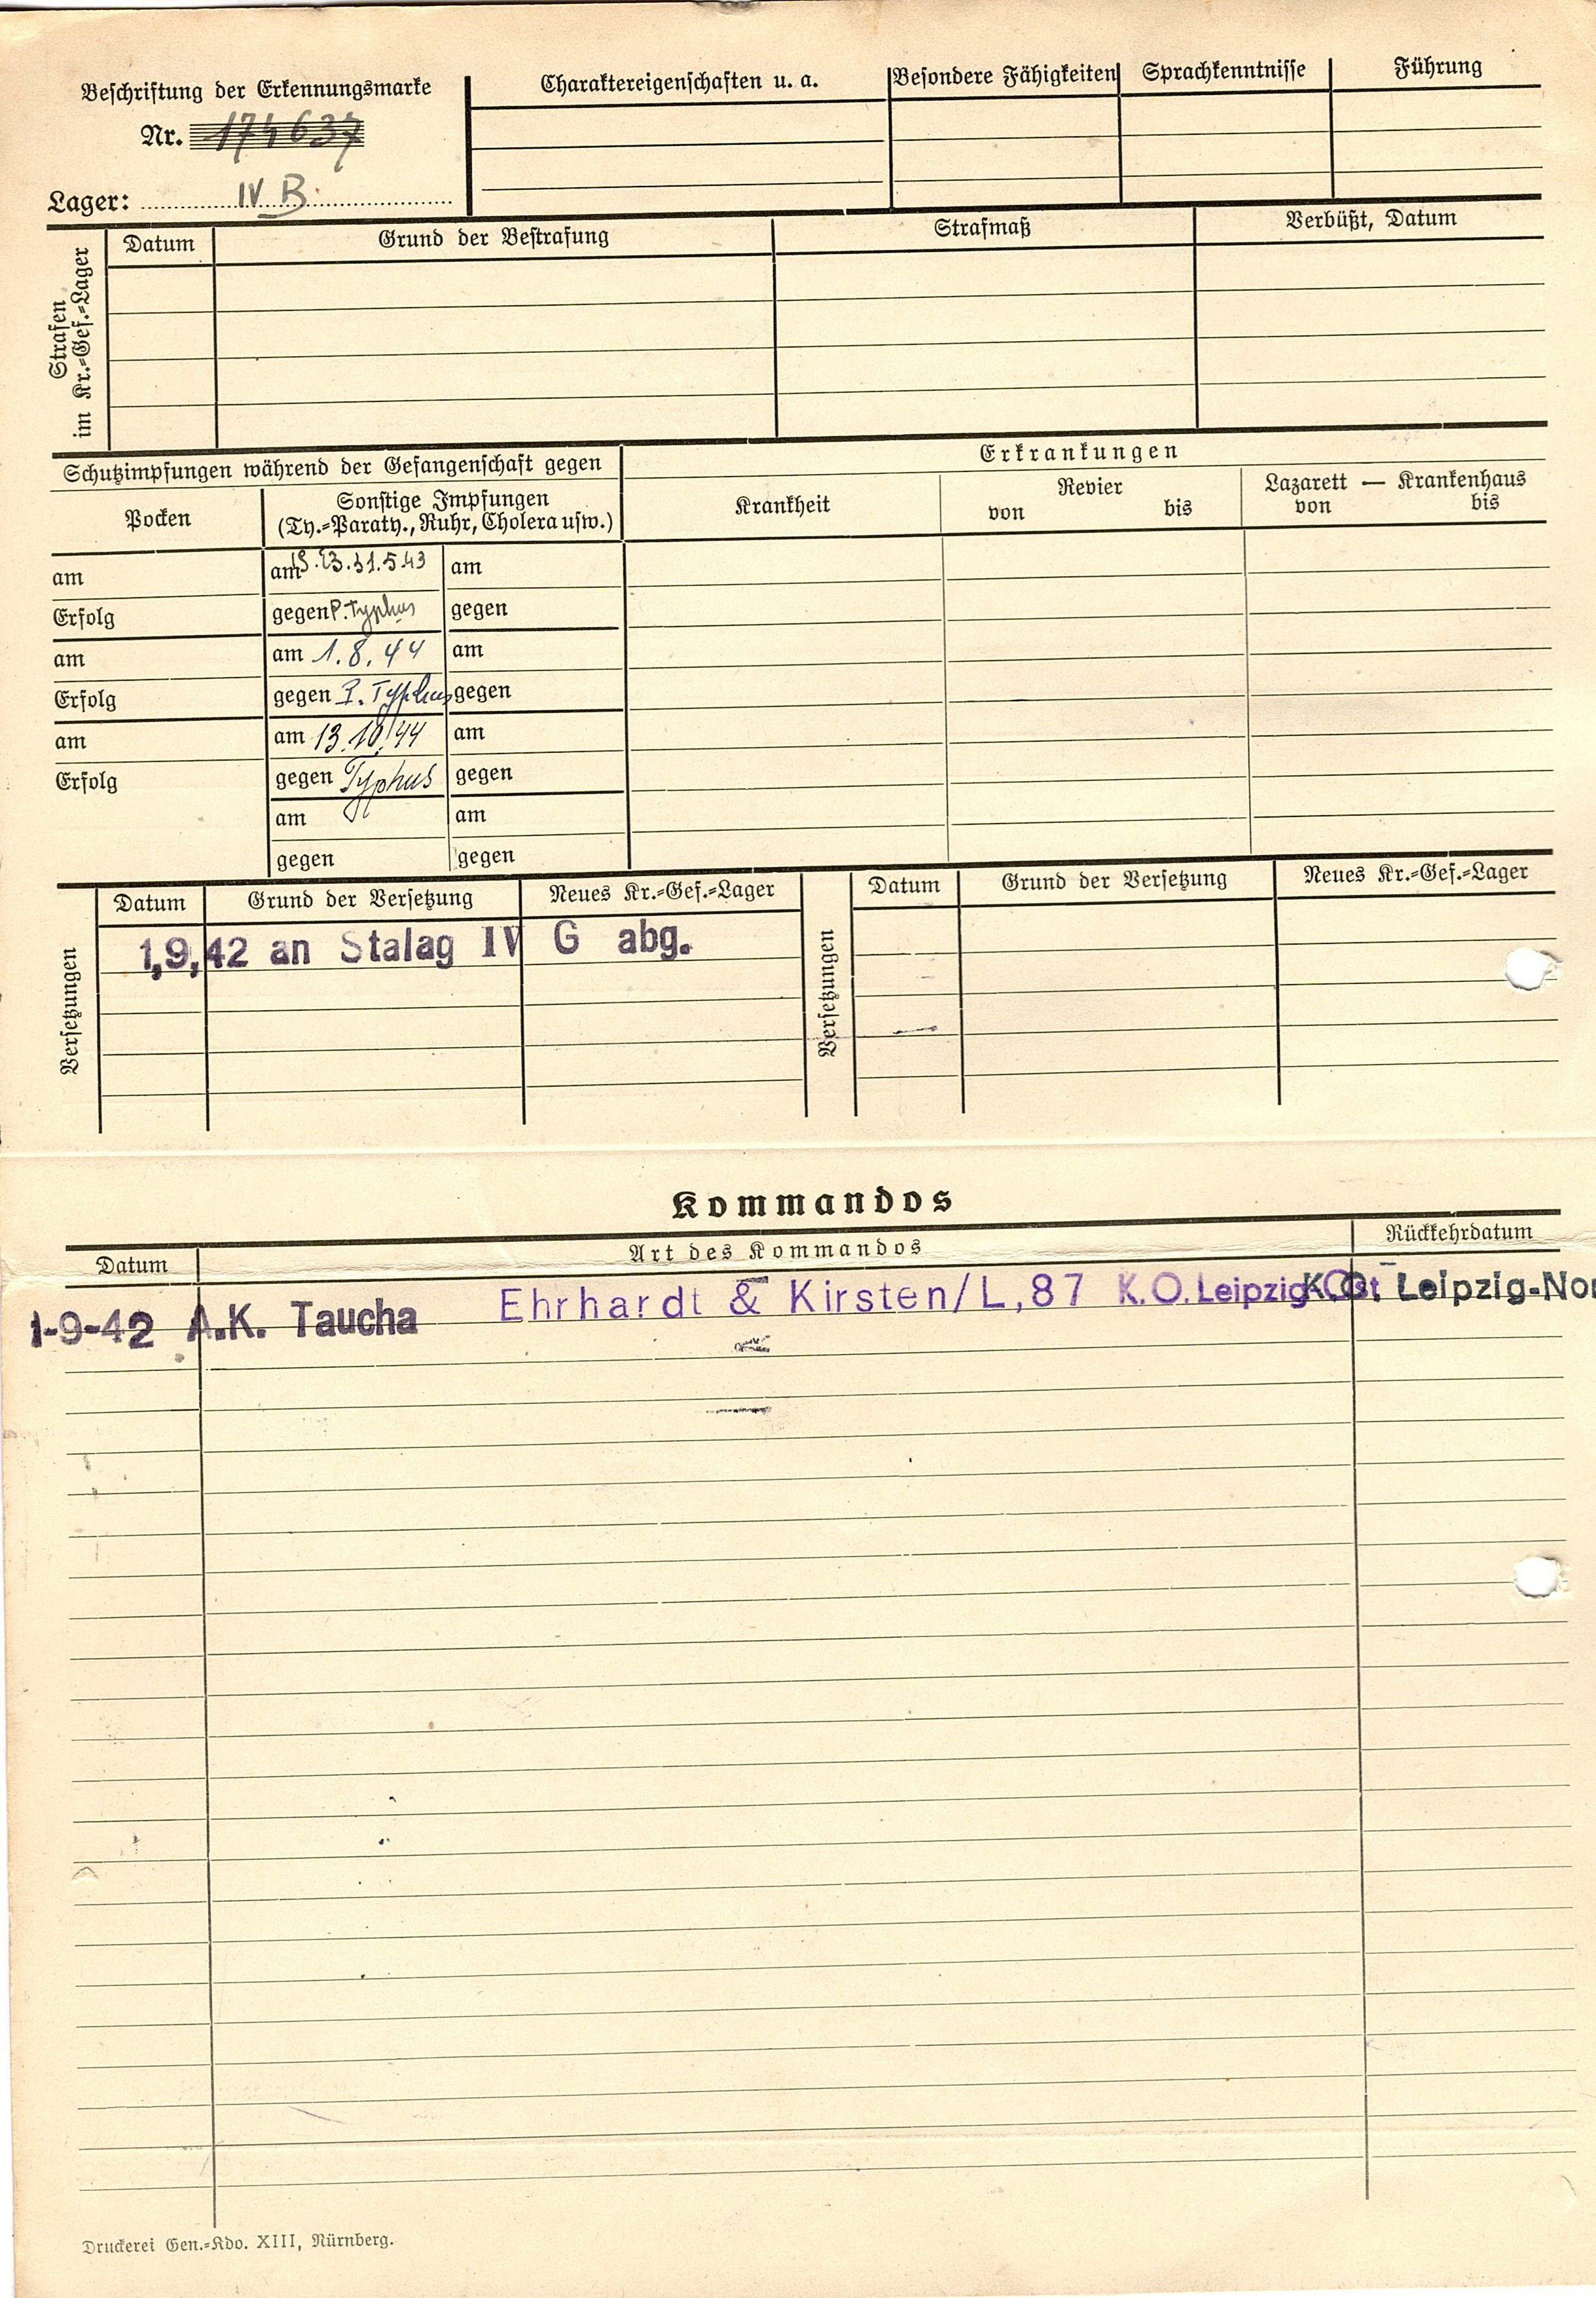 Beschriftung der Erkennungsmarke
Nr. 174637
Lager: IV B
Charaktereigenschaften u. a.
Besondere Fähigkeiten
Sprachkenntnisse
Führung
Strafen
im Kr.=Gef.=Lager
Datum
Grund der Bestrafung
Strafmaß
Verbüßt, Datum
Schutzimpfungen während der Gefangenschaft gegen
Erkrankungen
Pocken
Sonstige Impfungen
(Ty.=Paraty., Ruhr, Cholera usw.)
Krankheit
Revier
von bis
Lazarett — Krankenhaus
von bis
am
am 31.5.43
am
Erfolg
gegen P. Typhus
gegen
am
am 1.8.44
am
Erfolg
gegen P. Typhus
gegen
am
am 13.10.44
am
Erfolg
gegen Typhus
gegen
am
am
gegen
gegen
Versetzungen
Datum
Grund der Versetzung
Neues Kr.=Gef.=Lager
1,9,42 an Stalag IV G abg.
Versetzungen
Datum
Grund der Versetzung
Neues Kr.=Gef.=Lager
Kommandos
Datum
Art des Kommandos
Rückkehrdatum
1-9-42 A.K. Taucha Ehrhardt & Kirsten/L,87 K.O.Leipzig-Ost K.O. Leipzig-Nor
Druckerei Gen.=Kdo. XIII, Nürnberg.